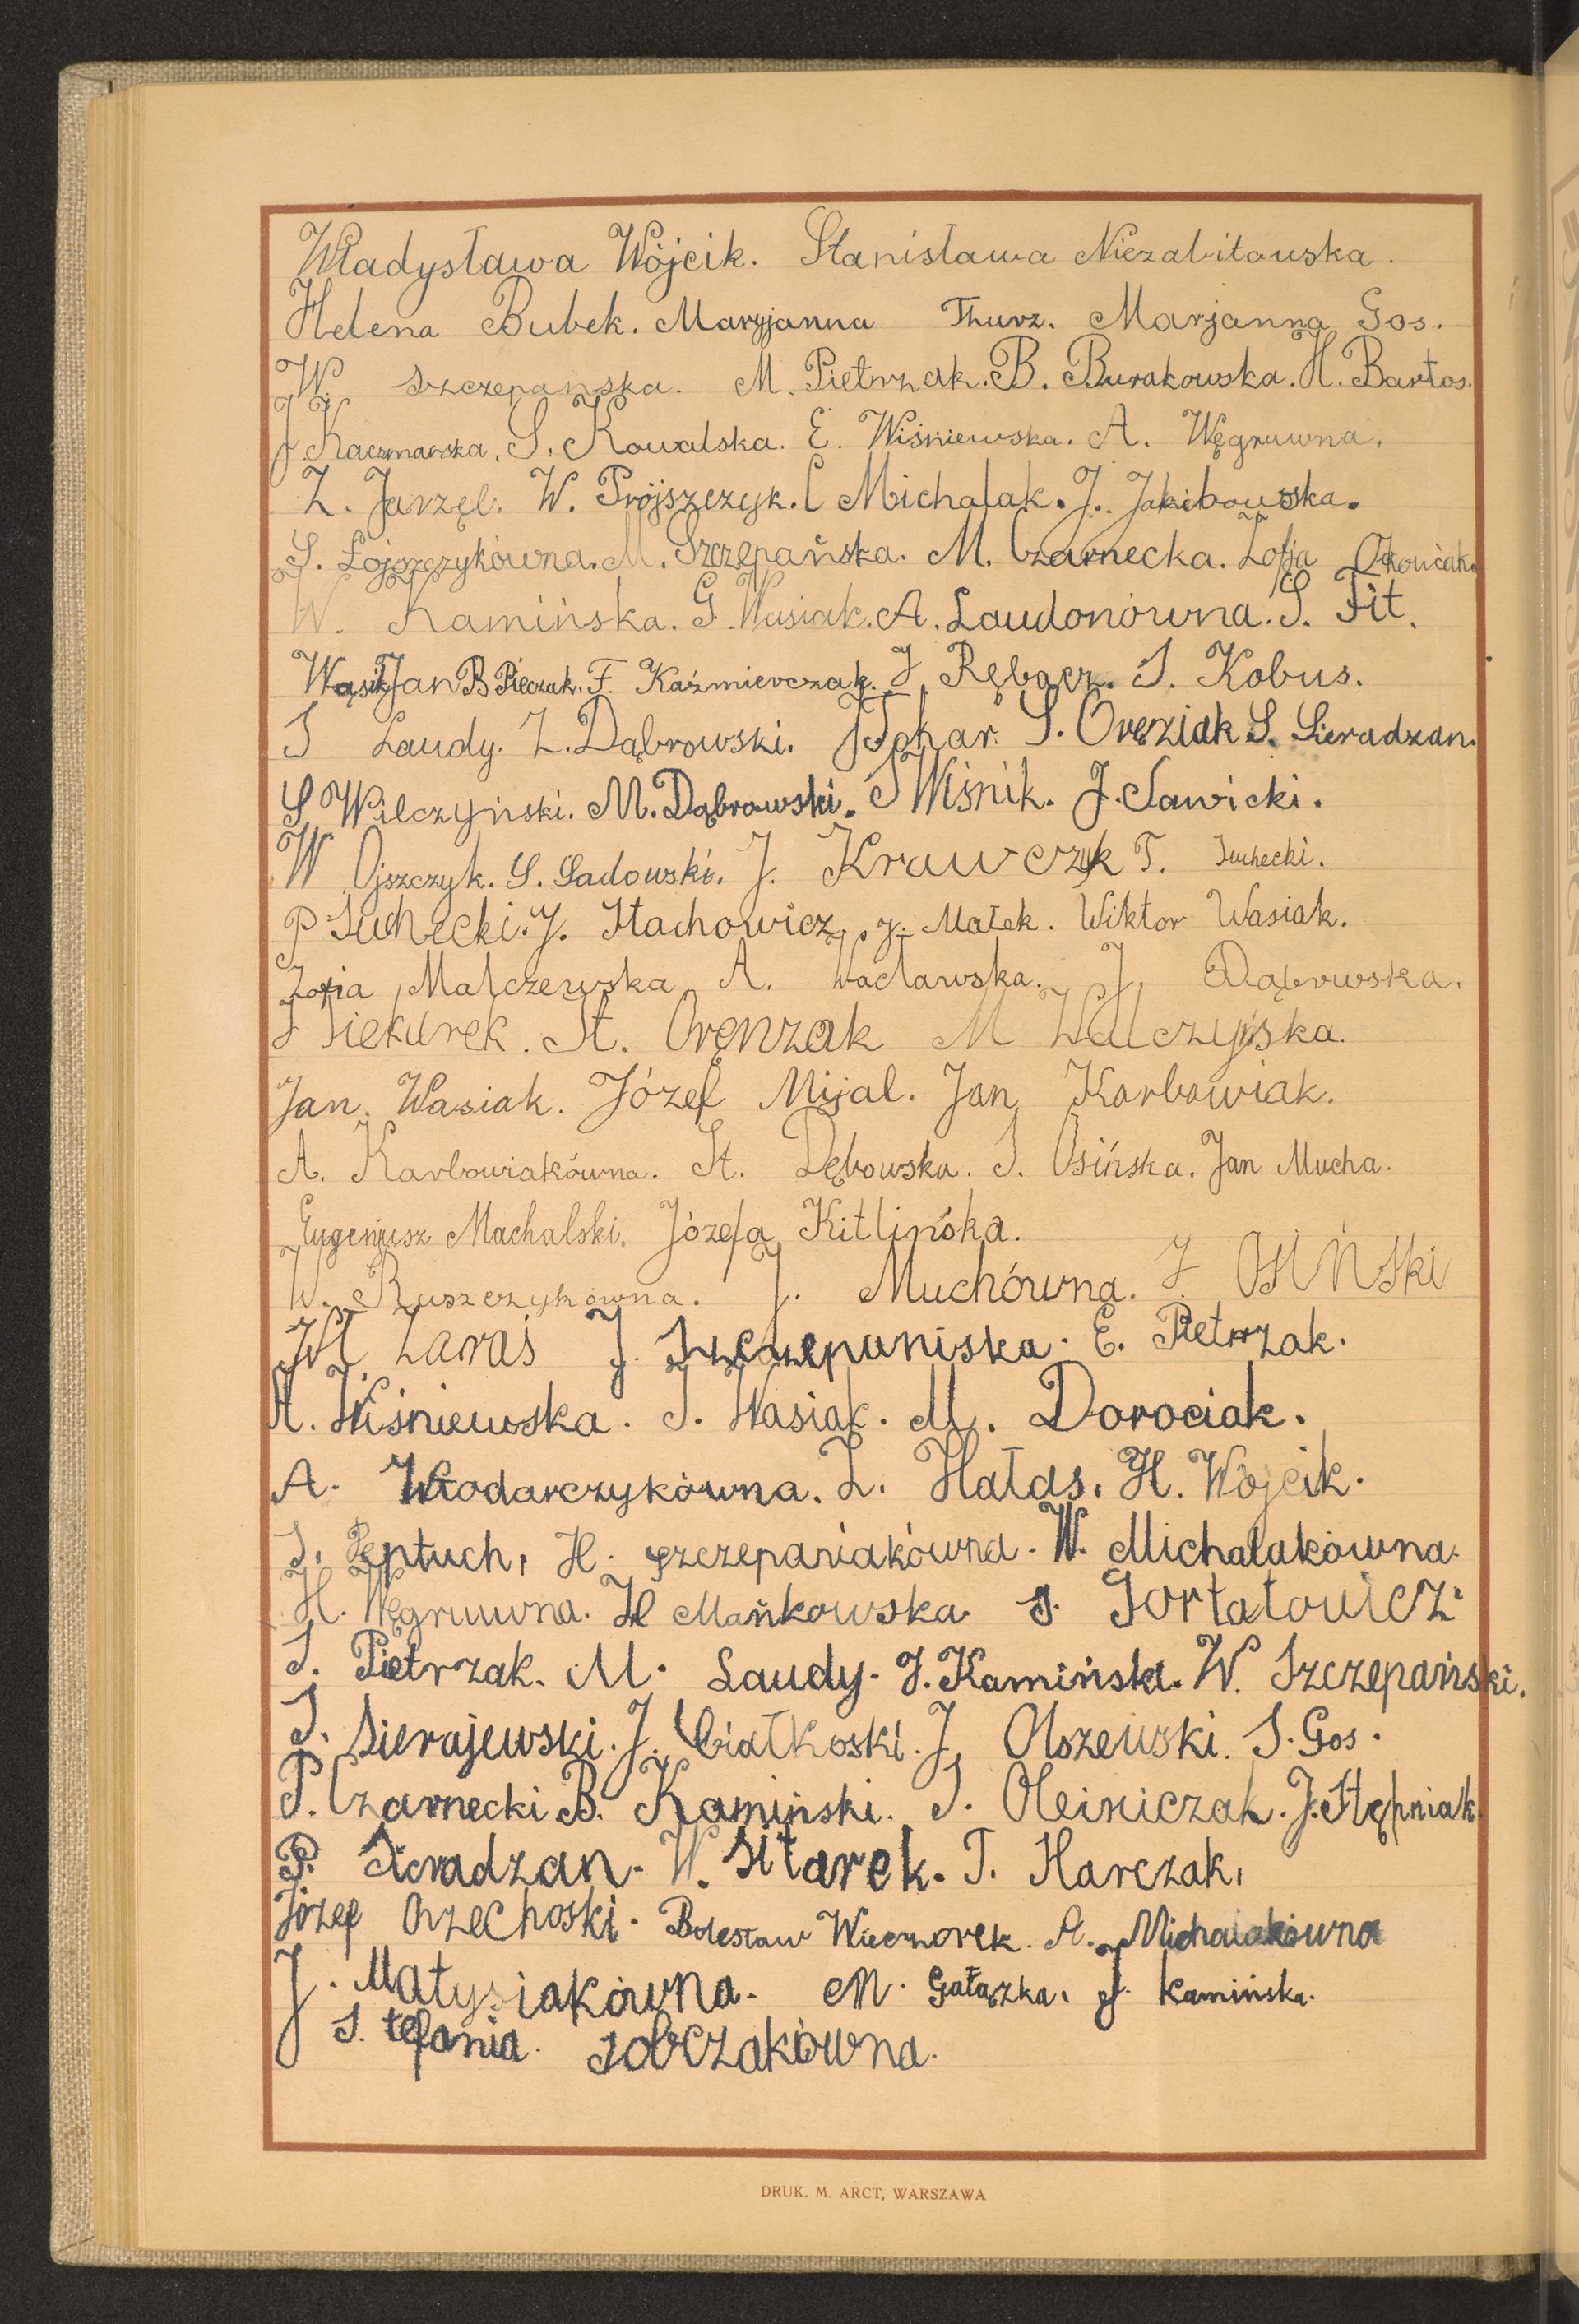 Władysława Wójcik. Stanisława Niezabitowska.
Helena Bubek. Maryjanna Thurz. Marjanna Gos.
W. Szczepanska. M. Pietrzak. B. Burakowska. H. Bartos.
J Kaczmarska. S. Kowalska. E. Wiśniewska. A. Węgruwna.
Z. Jarzęb. W. Prójszczyk. C Michalak. J. Jakibowska.
S. Łojszczykówna. M. Szczepańska. M. Czarnecka. Zofja
W. Kamińska. G. Wasiak. A. Laudonówna. S. Fit.
Wąsik Jan B Pieczak. F. Kaźmierczak. J Rębacz. S. Kobus.
S Laudy. Z. Dąbrowski. J Tokar. S. Oręziak S. Sieradzan.
S Wilczyński. M. Dąbrowski. S Wiśnik. J. Sawicki.
W Ojszczyk. S. Sadowski. J. Krawczyk T. Suchecki.
P Suchecki. J. Stachowicz. J. Małek. Wiktor Wasiak.
Zofia Malczewska A. Wacławska. J. Dąbrowska.
S Siekurek. St. Oręnzak M Walczyńska.
Jan. Wasiak. Józef Mijal. Jan Karbowiak.
A. Karbowiakówna. St. Dębowska. S. Osińska. Jan Mucha.
Eugenjusz Machalski. Józefa Kitlińska.
W. Ruszczykówna. J. Muchówna. J. OSIŃSki
M Zaraś J. Szczepaniska. E. Pietrzak.
A. Wiśniewska. S. Wasiak. M. Dorociak.
A. Włodarczykówna. Z. Hałas. H. Wójcik.
S. Peptuch. H. Szczepaniakówna. W. Michalakówna.
H. Węgruwna. H Mańkowska. S. Gortatowicz.
S. Pietrzak. M. Laudy. J. Kamiński. W. Szczepański.
S. Sierajewski. J. Białkoski. J. Olszewski. S. Gos.
P. Czarnecki B. Kamiński. S. Oleiniczak. J. Stępniak.
P. Sieradzan. W. Sitarek. T. Harczak.
Józef Orzechoski. Bolesław Wieczorek. A. Michalakówna
J. Matysiakówna. M. Gałązka. J. Kamińska.
S. tefania. Sobczakówna.
DRUK. M. ARCT, WARSZAWA